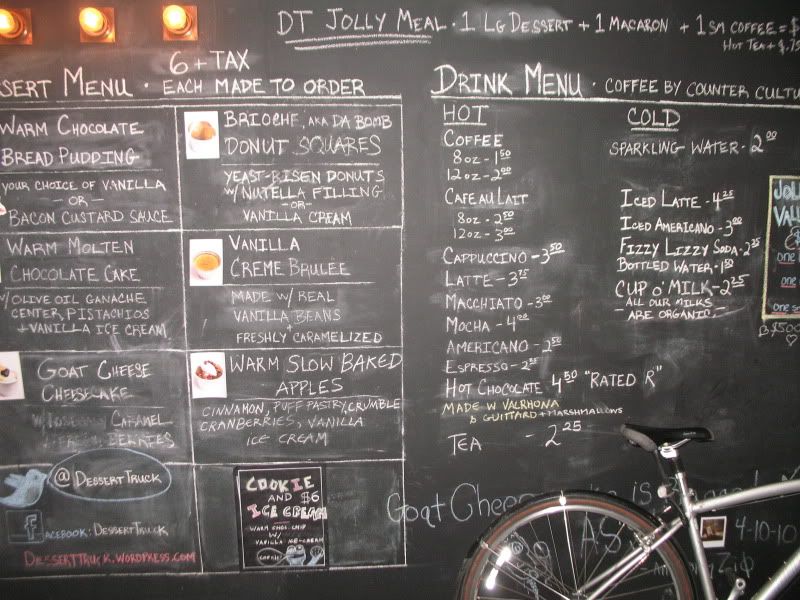 DT JOLLY MEAL · 1 LG DESSERT + 1 MACARON + 1 SM COFFEE = $
HOT TEA + $.75
6 + TAX
SERT MENU · EACH MADE TO ORDER
WARM CHOCOLATE
BREAD PUDDING
YOUR CHOICE OF VANILLA
- OR -
BACON CUSTARD SAUCE
BRIOCHE, AKA DA BOMB
DONUT SQUARES
YEAST-RISEN DONUTS
W/ NUTELLA FILLING
-OR-
VANILLA CREAM
WARM MOLTEN
CHOCOLATE CAKE
W/ OLIVE OIL GANACHE
CENTER, PISTACHIOS
+ VANILLA ICE CREAM
VANILLA
CREME BRULEE
MADE W/ REAL
VANILLA BEANS
+
FRESHLY CARAMELIZED
GOAT CHEESE
CHEESECAKE
W/ CARAMEL
BERRIES
WARM SLOW BAKED
APPLES
CINNAMON, PUFF PASTRY, CRUMBLE
CRANBERRIES, VANILLA
ICE CREAM
@DESSERTTRUCK
FACEBOOK: DESSERTTRUCK
DESSERTTRUCK.WORDPRESS.COM
COOKIE
AND $6
ICE CREAM
WARM CHOC. CHIP
W/
VANILLA ICE-CREAM
DRINK MENU · COFFEE BY COUNTER CULTU
HOT
COFFEE
8oz - 1.50
12oz - 2.00
CAFE AU LAIT
8oz - 2.50
12oz - 3.00
CAPPUCCINO - 3.50
LATTE - 3.75
MACCHIATO - 3.00
MOCHA - 4.00
AMERICANO - 2.50
ESPRESSO - 2.25
HOT CHOCOLATE 4.50 "RATED R"
MADE W VALRHONA
& GUITTARD + MARSHMALLOWS
TEA - 2.25
COLD
SPARKLING WATER - 2.00
ICED LATTE - 4.25
ICED AMERICANO - 3.00
FIZZY LIZZY SODA - 2.25
BOTTLED WATER - 1.50
CUP O' MILK - 2.25
- ALL OUR MILKS
ARE ORGANIC -
JOL
VAL
$
one
one
Goat Chee
is
AS
4-10-10